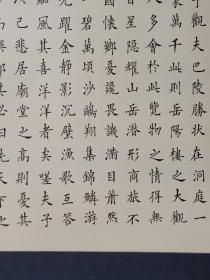 予觀夫巴陵勝狀在洞庭一
象萬千此則岳陽樓之大觀
人多會於此覽物之情得無
日星隱耀山岳潛形商旅不
國懷鄉憂讒畏譏滿目蕭然
碧萬頃沙鷗翔集錦鱗游
躍金靜影沉璧漁歌互答
風其喜洋洋者矣嗟夫予
己悲居廟堂之高則憂其